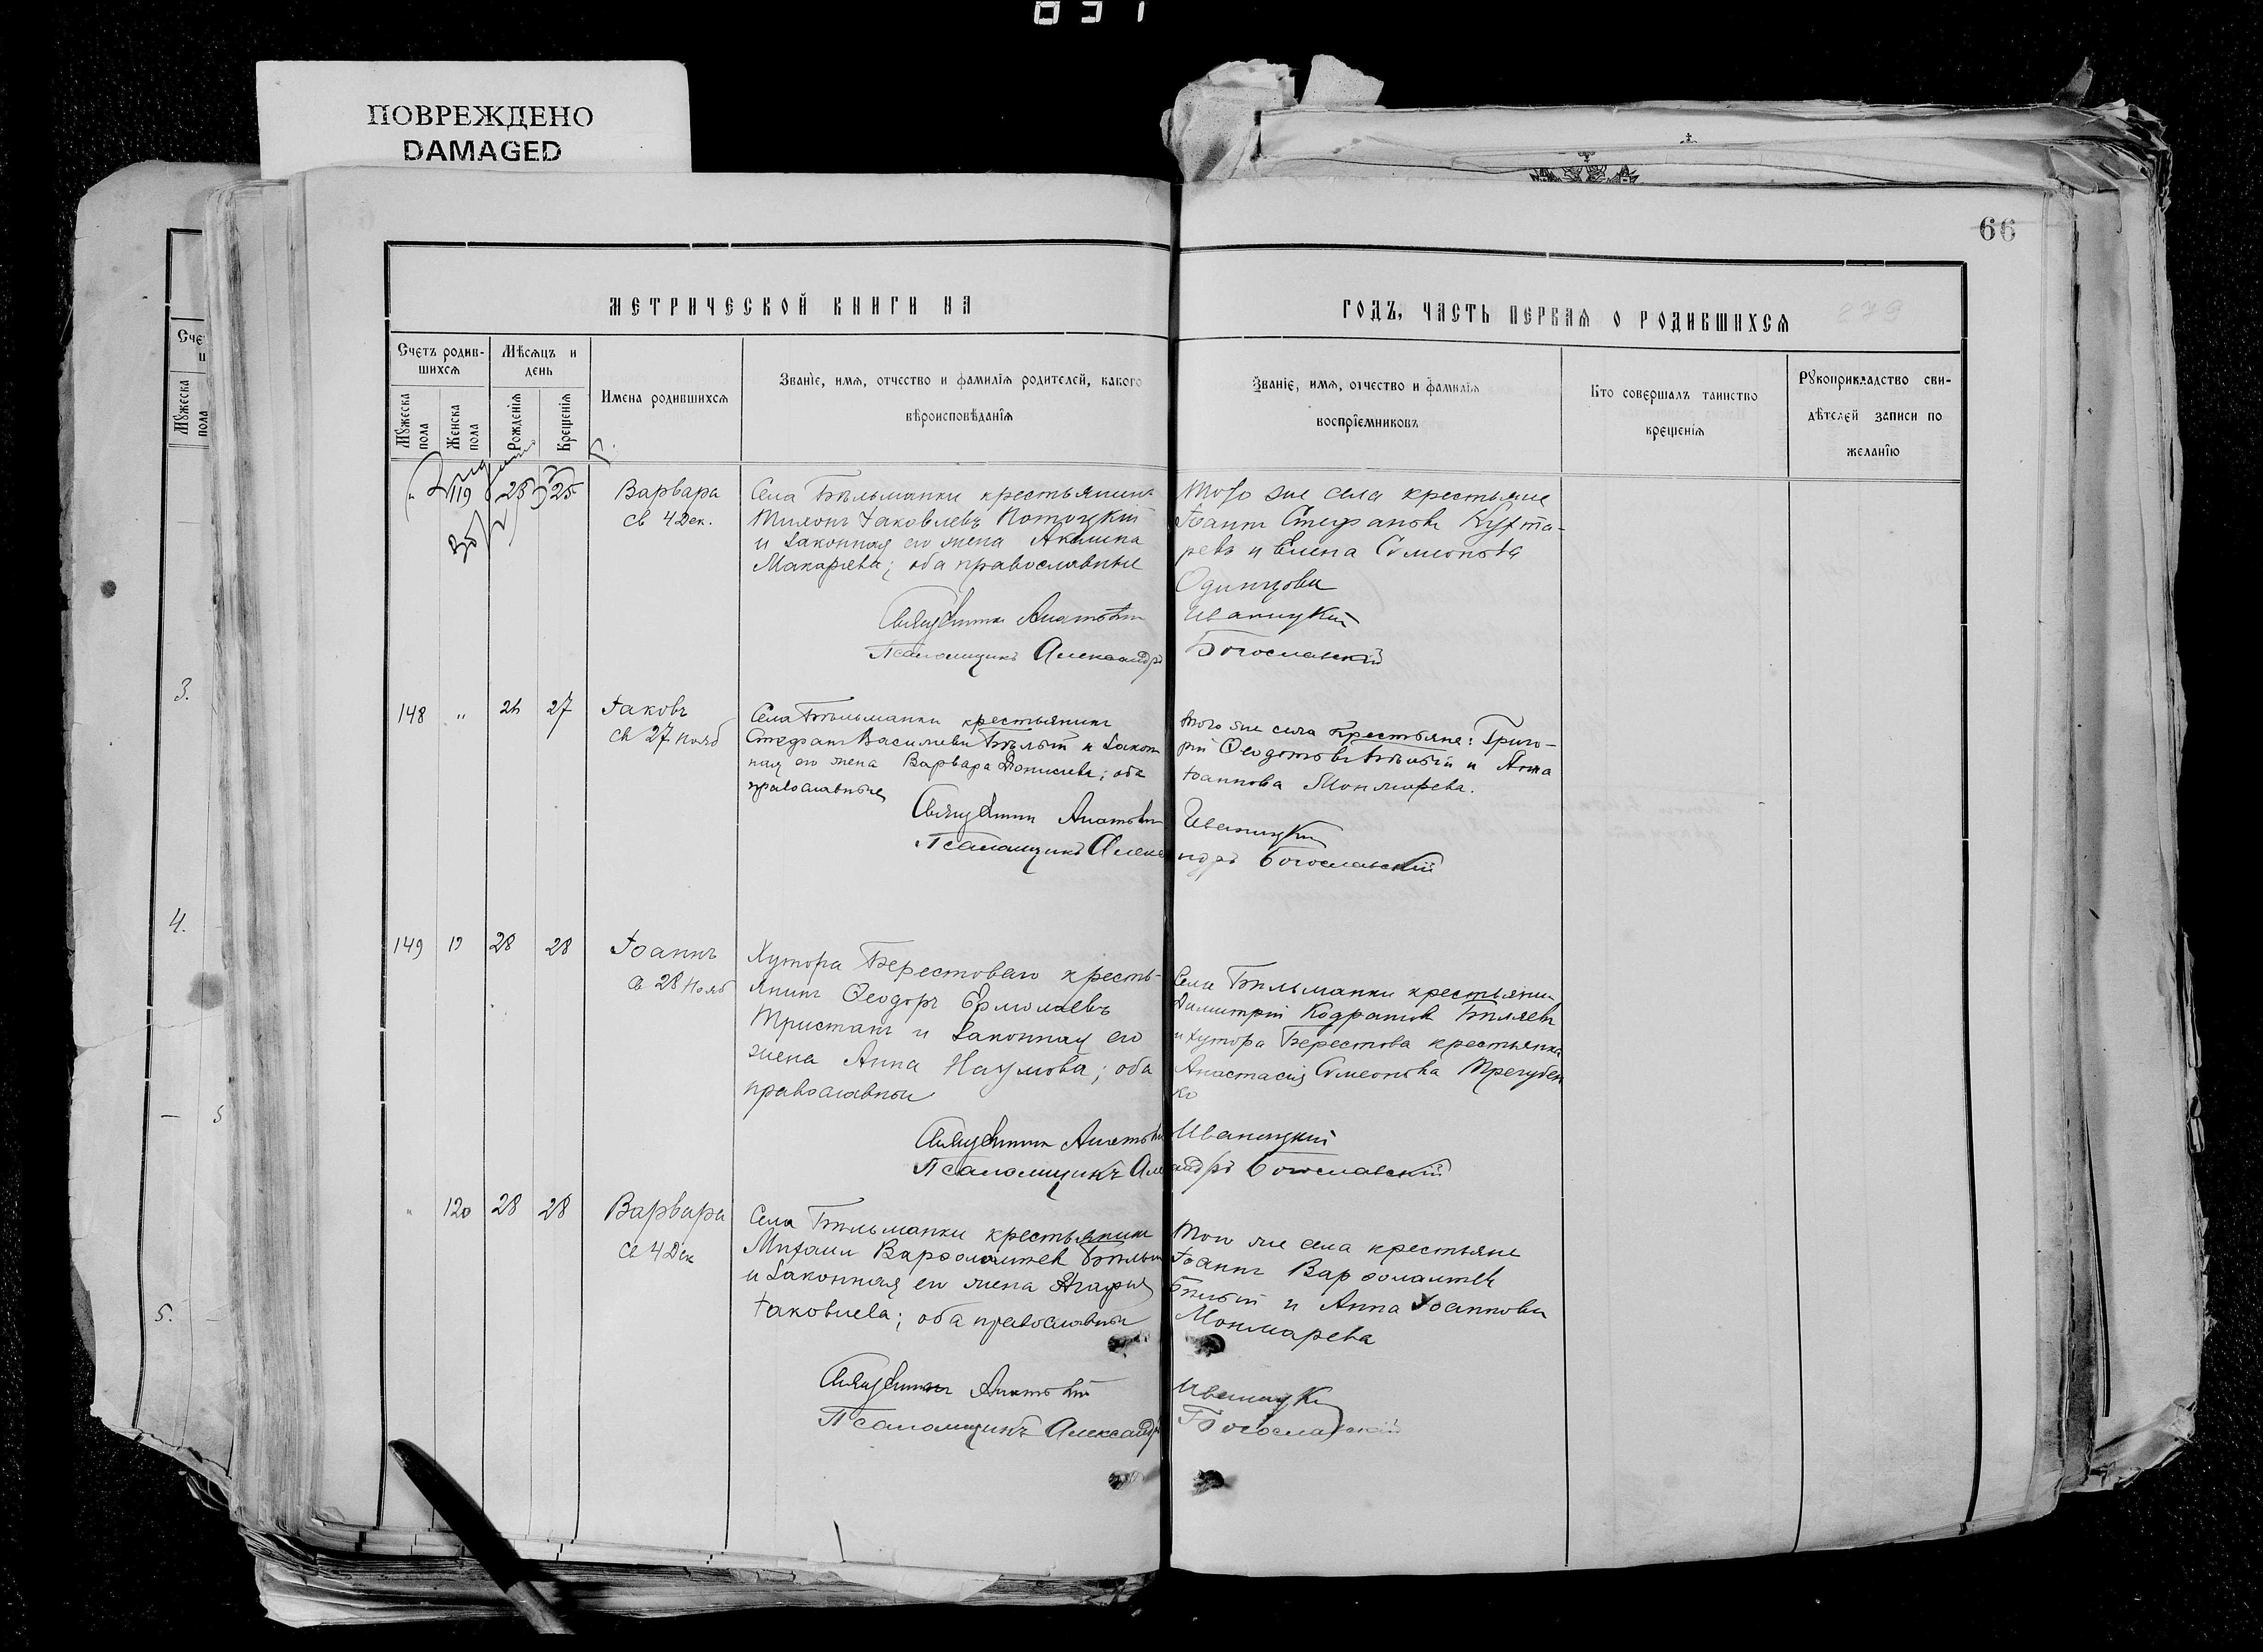 ПОВРЕЖДЕНО
DAMAGED
66
МЕТРИЧЕСКОЙ КНИГИ НА
ГОДЪ, ЧАСТЬ ПЕРВАЯ О РОДИВШИХСЯ
279
Счетъ родив-
шихся
Мужеска пола
Женска пола
Мѣсяцъ и
день
Рожденія
Крещенія
Имена родившихся
Званіе, имя, отчество и фамилія родителей, какого
вѣроисповѣданія
Званіе, имя, отчество и фамилія
воспріемниковъ
Кто совершалъ таинство
крещенія
Рукоприкладство сви-
дѣтелей записи по
желанію
" 119 25 25
Варвара
св 4 Дек.
Села Бѣльманки крестьянинъ
Тихонъ Іаковлевъ Потоцкій
и законная его жена Акилина
Макаріева; оба православные
Того же села крестьяне
Іоаннъ Стефановъ Кухта-
ревъ и Елена Симеонова
Одинцова
Священникъ Анатолій Иваницкій
Псаломщикъ Александръ Богославскій
148 " 26 27
Іаковъ
св 27 нояб
Села Бѣльманки крестьянинъ
Стефанъ Васильевъ Бѣлый и закон
ная его жена Варвара Діонисіева; оба
православные
того же села крестьяне: Григо-
рій Ѳеодотовъ Бѣлый и Анна
Іоаннова
Священникъ Анатолій Иваницкій
Псаломщикъ Александръ Богославскій
149 " 28 28
Іоаннъ
св 28 Нояб
Хутора Берестоваго кресть-
янинъ Ѳеодоръ Ермолаевъ
Тристанъ и законная его
жена Анна Наумова; оба
православные
Села Бѣльманки крестьянинъ
Димитрій Кодратовъ Бѣляевъ
и хутора Берестова крестьянка
Анастасія Симеонова Трегубен
ко
Священникъ Анатолій Иваницкій
Псаломщикъ Александръ Богославскій
" 120 28 28
Варвара
св 4 Дек
Села Бѣльманки крестьянинъ
Михаилъ Варѳоломеевъ Бѣлый
и законная его жена Агафія
Іаковлева; оба православные
Того же села крестьяне
Іоаннъ Варѳоломеевъ
Бѣлый и Анна Іоаннова
Священникъ Анатолій Иваницкій
Псаломщикъ Александръ Богославскій
3.
4.
5.